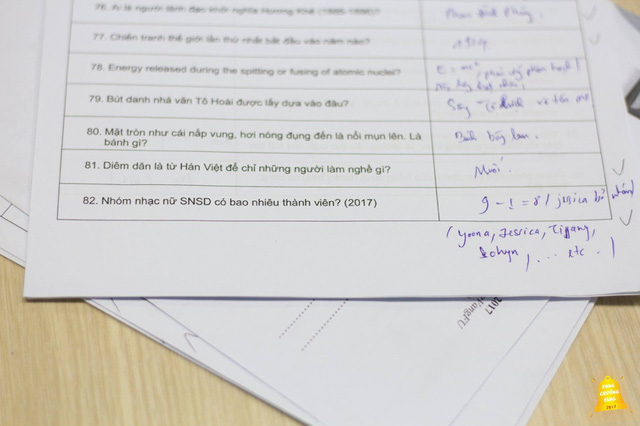 76. Ai là người lãnh đạo khởi nghĩa Hương Khê (1885-1896)?
Phan Đình Phùng.
77. Chiến tranh thế giới lần thứ nhất bắt đầu vào năm nào?
1914
78. Energy released during the spitting or fusing of atomic nuclei?
E = mc²
79. Bút danh nhà văn Tô Hoài được lấy dựa vào đâu?
Sông Tô
80. Mặt tròn như cái nắp vung, hơi nóng đụng đến là nổi mụn lên. Là
bánh gì?
Bánh bông lan.
81. Diêm dân là từ Hán Việt để chỉ những người làm nghề gì?
Muối.
82. Nhóm nhạc nữ SNSD có bao nhiêu thành viên? (2017)
9 - 1 = 8 / jessica bỏ nhóm)
( Yoona, Jessica, Tiffany,
, ... etc . )
2017
RUNG
CHUÔNG
VÀNG
2017